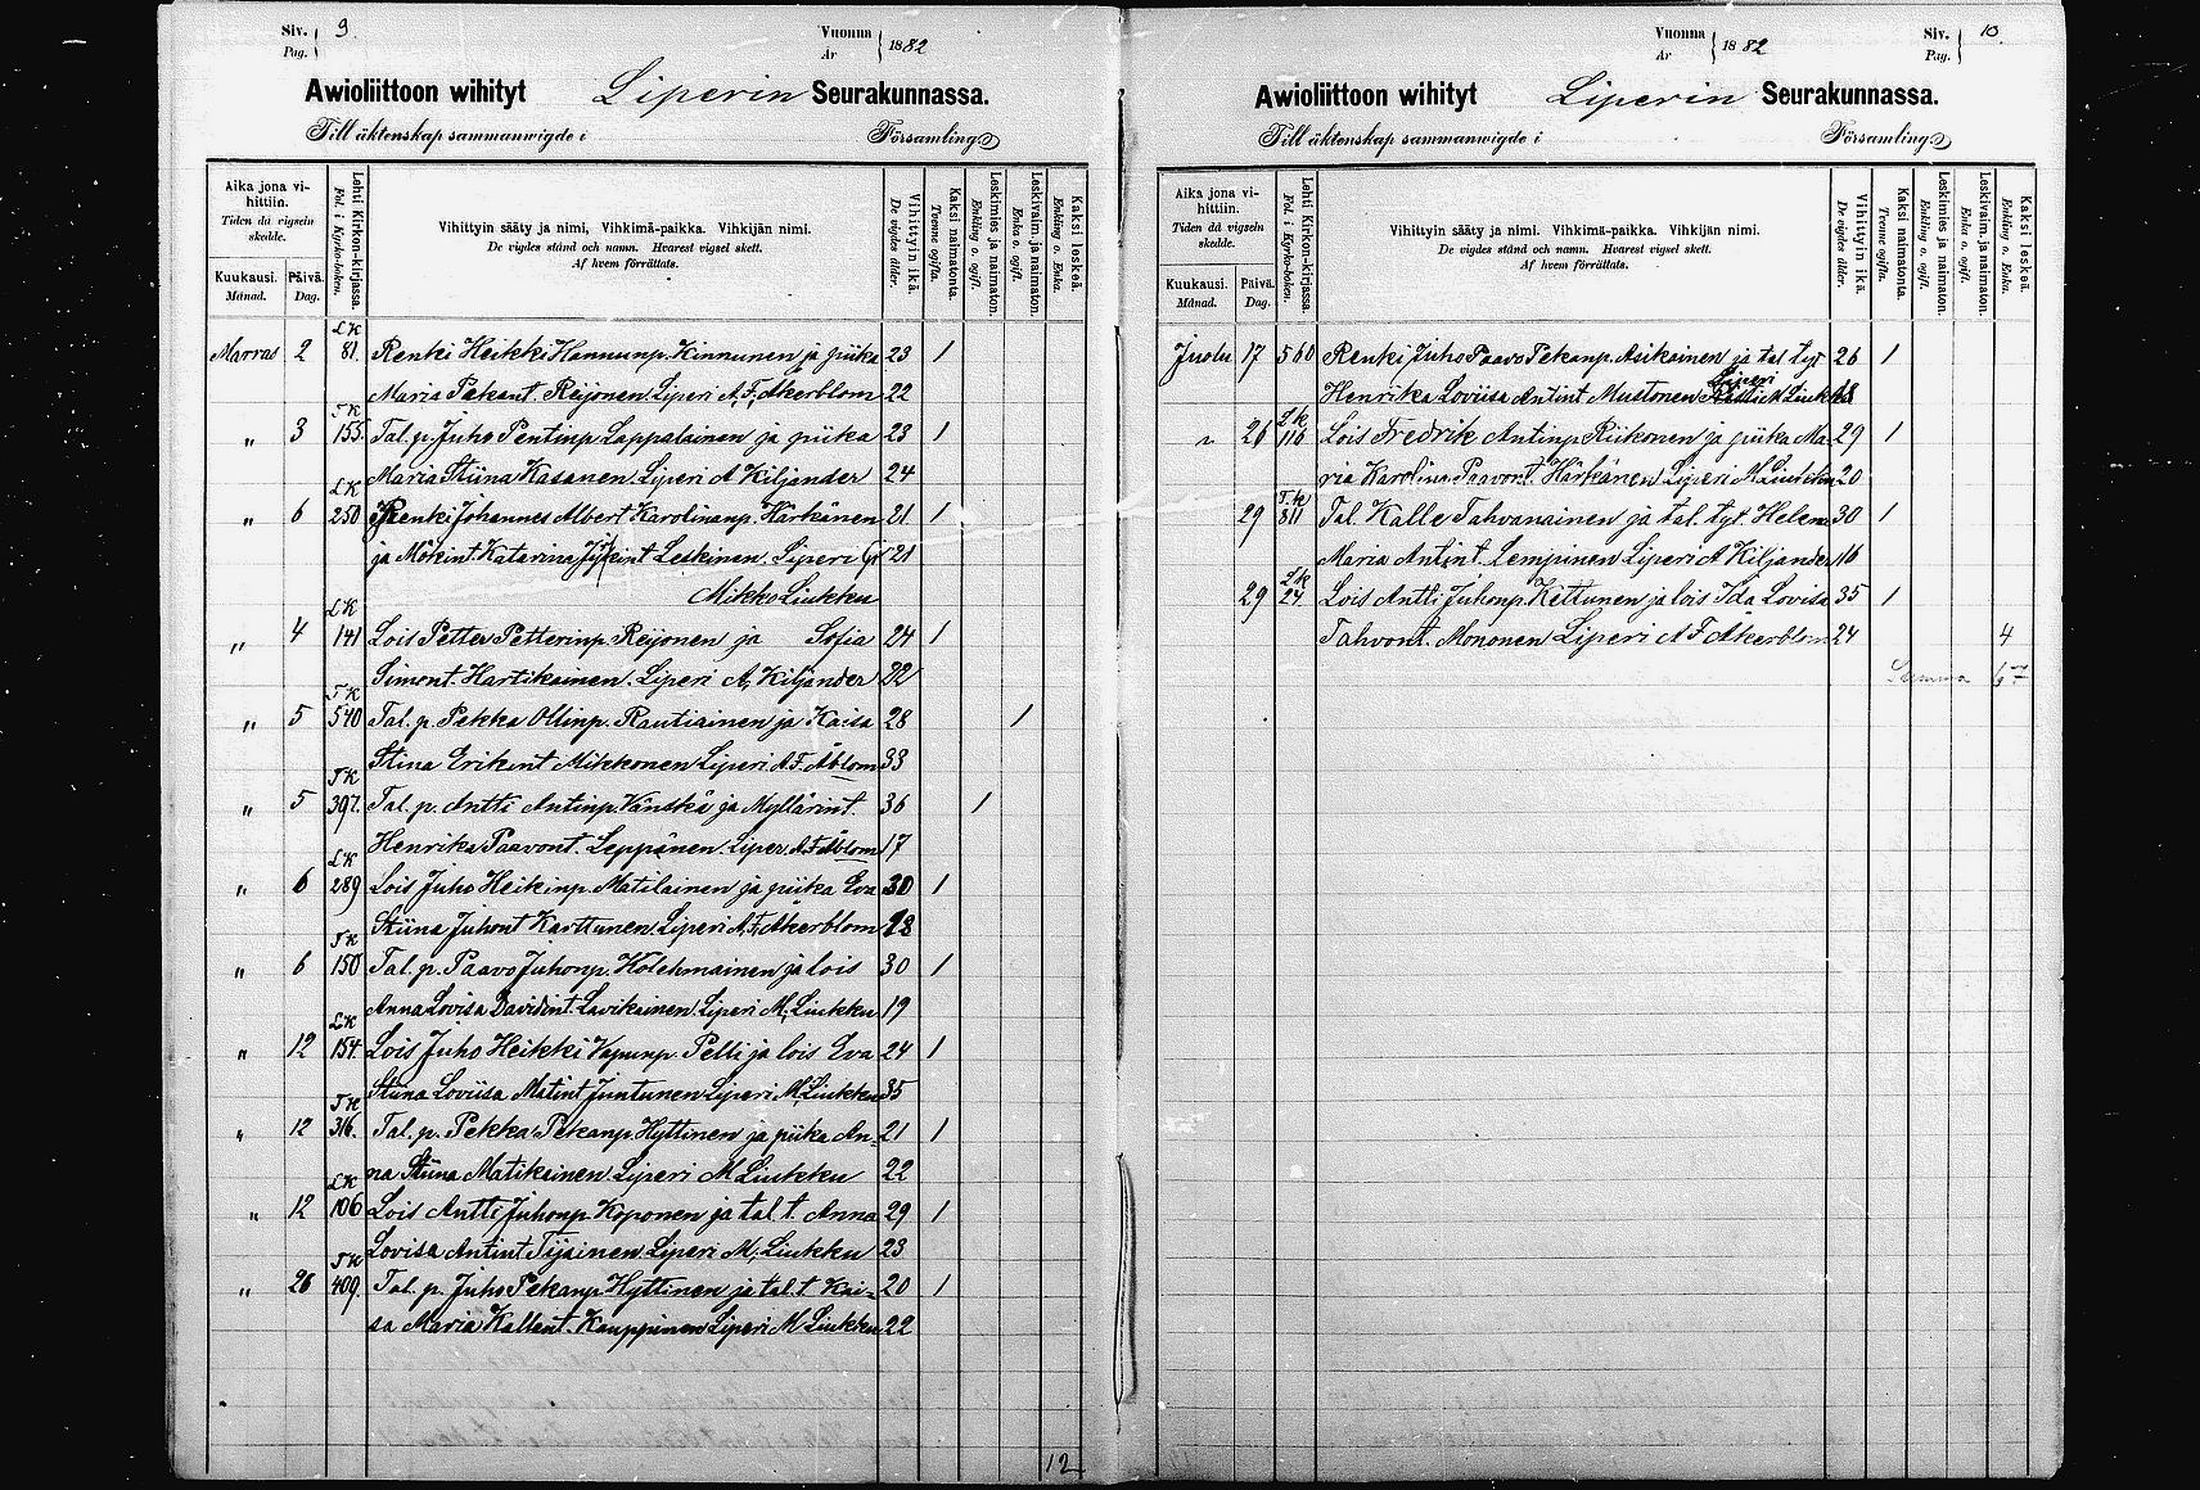 Siv. Pag. 9.
Vuonna År 1882
Awioliittoon wihityt Liperin Seurakunnassa.
Till äktenskap sammanwigde i Församling.
Aika jona vihittiin.
Tiden då vigseln skedde.
Kuukausi. Månad.
Päivä. Dag.
Lehti Kirkon-kirjassa.
Fol. i Kyrko-boken.
Vihittyin sääty ja nimi, Vihkimä-paikka. Vihkijän nimi.
De vigdes stånd och namn. Hvarest vigsel skett.
Af hvem förrättats.
Vihittyin ikä.
De vigdes ålder.
Kaksi naimatonta.
Tvenne ogifta.
Leskimies ja naimaton.
Enkling o. ogift.
Leskivaim. ja naimaton.
Enka o. ogift.
Kaksi leskeä.
Enkling o. Enka.
LK
Marras 2 81. Renki Heikki Hannunp. Kinnunen ja piika 23 1
Maria Pekant. Reijonen. Liperi A. F. Akerblom 22
TK
" 3 155. Tal. p. Juho Pentinp Lappalainen ja piika 23 1
Maria Stiina Kasanen. Liperi A Kiljander 24
LK
" 6 250 Renki Johannes Albert Karolinanp. Härkänen 21 1
ja Mökint. Katarina Leskinen. Liperi 21
Mikko Liukku
LK
" 4 141 Lois Petter Petterinp. Reijonen ja Sofia 24 1
Simont. Hartikainen. Liperi A. Kiljander 22
TK
" 5 540 Tal. p. Pekka Ollinp. Rautiainen ja Kaisa 28 1
Stina Erikint Mikkonen Liperi. A. F. Åblom 33
TK
" 5 397. Tal. p. Antti Antinp. Vänskä ja Myllärint. 36 1
Henrika Paavont. Leppänen. Liper. A. F. Åblom 17
LK
" 6 289 Lois Juho Heikinp. Matilainen ja piika Eva 30 1
Stiina Juhont Karttunen. Liperi A. F. Akerblom 18
TK
" 6 150 Tal. p. Paavo Juhonp. Kolehmainen ja lois 30 1
Anna Lovisa Davidint. Lavikainen. Liperi M. Liukku 19
LK
" 12 154. Lois Juho Heikki Vapunp. Pelli ja lois Eva 24 1
Stiina Loviisa Matint Juntunen Liperi M. Liukku 35
TK
" 12 316. Tal. p. Pekka Pekanp. Hyttinen ja piika An- 21 1
na Stiina Matikainen. Liperi M Liukku 22
LK
" 12 106 Lois Antti Juhonp. Koponen ja tal. t. Anna 29 1
Lovisa Antint Tijainen. Liperi M. Liukku 23
TK
" 26 409. Tal. p. Juho Pekanp. Hyttinen ja tal. t Kai- 20 1
sa Maria Kallent. Kauppinen Liperi M Liukku 22
12
Vuonna År 1882
Siv. Pag. 10.
Awioliittoon wihityt Liperin Seurakunnassa.
Till äktenskap sammanwigde i Församling.
Aika jona vihittiin.
Tiden då vigseln skedde.
Kuukausi. Månad.
Päivä. Dag.
Lehti Kirkon-kirjassa.
Fol. i Kyrko-boken.
Vihittyin sääty ja nimi. Vihkimä-paikka. Vihkijän nimi.
De vigdes stånd och namn. Hvarest vigsel skett.
Af hvem förrättats.
Vihittyin ikä.
De vigdes ålder.
Kaksi naimatonta.
Tvenne ogifta.
Leskimies ja naimaton.
Enkling o. ogift.
Leskivaim. ja naimaton.
Enka o. ogift.
Kaksi leskeä.
Enkling o. Enka.
Juolu 17 560 Renki Juho Paavo Pekanp. Asikainen ja tal tyt 26 1
Liperi
Henrika Loviisa Antint Mustonen M Liukku 18
Lk
" 26 116 Lois Fredrik Antinp. Riikonen ja piika Ma- 29 1
ria Karolina Paavont. Härkänen Liperi M Liukku 20
T.k
29 811 Tal. Kalle Tahvanainen ja tal. tyt. Helena 30 1
Maria Antint. Lempinen Liperi A Kiljander 16
Lk
29 24. Lois Antti Juhonp. Kettunen ja lois Ida Lovisa 35 1
Tahvont. Mononen Liperi A F Akerblom 24
4
Summa